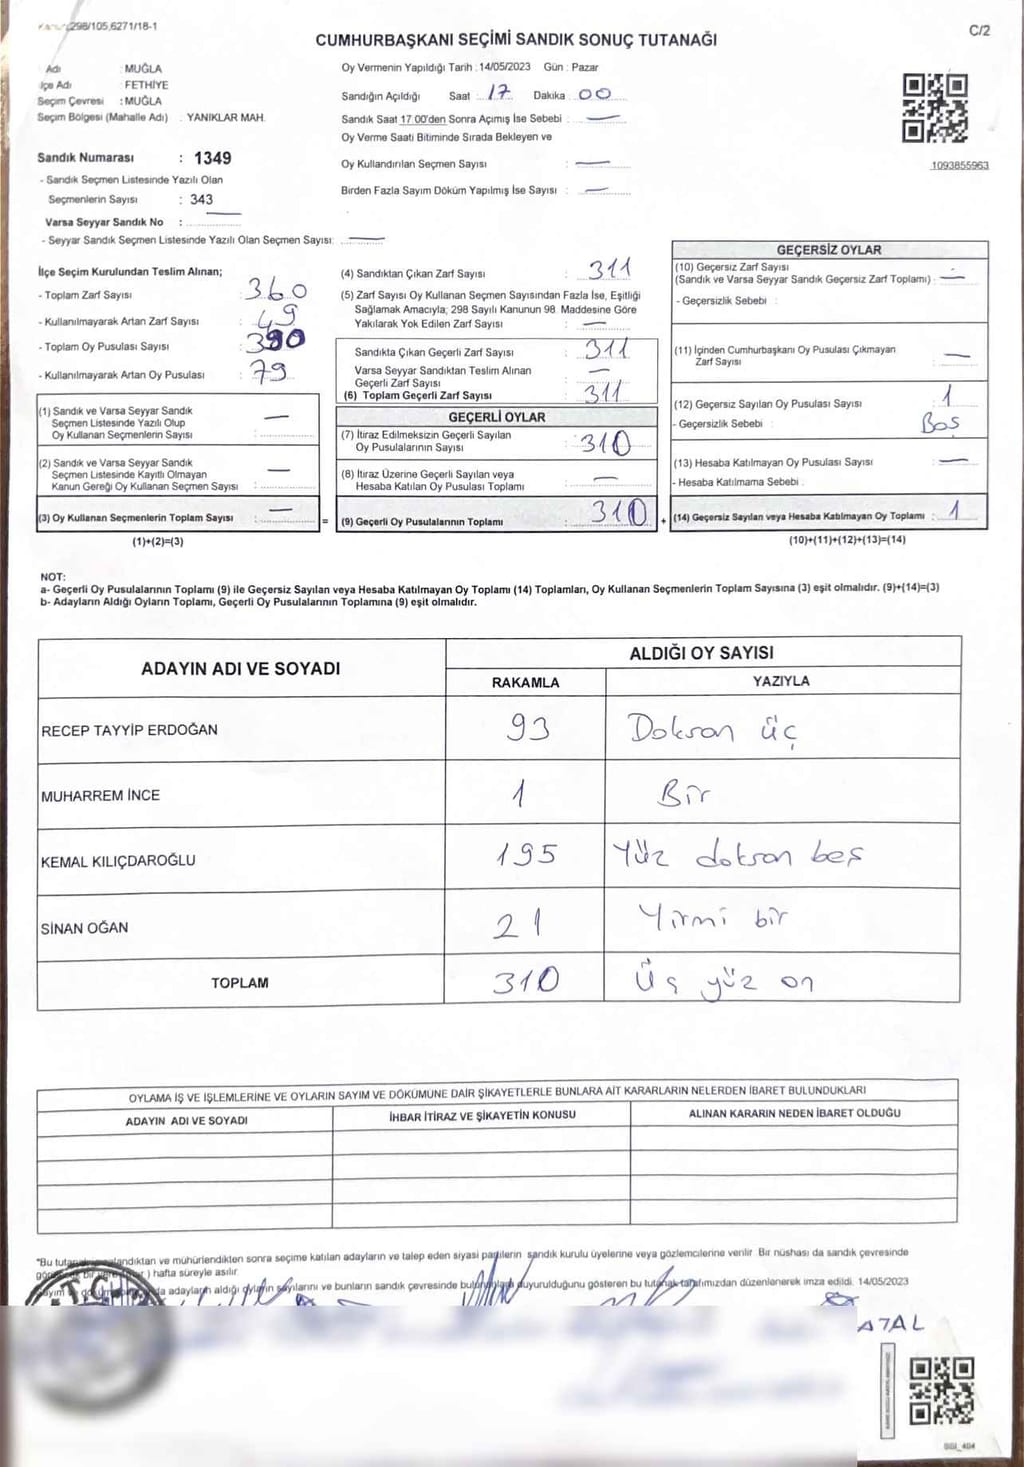 298/105,6271/18-1
C/2
CUMHURBAŞKANI SEÇİMİ SANDIK SONUÇ TUTANAĞI
Adı : MUĞLA
İlçe Adı : FETHİYE
Seçim Çevresi : MUĞLA
Seçim Bölgesi (Mahalle Adı) : YANIKLAR MAH.
Sandık Numarası : 1349
- Sandık Seçmen Listesinde Yazılı Olan
Seçmenlerin Sayısı : 343
Varsa Seyyar Sandık No : —
- Seyyar Sandık Seçmen Listesinde Yazılı Olan Seçmen Sayısı: —
Oy Vermenin Yapıldığı Tarih : 14/05/2023 Gün : Pazar
Sandığın Açıldığı Saat : 17 Dakika : 00
Sandık Saat 17.00'den Sonra Açımış İse Sebebi : —
Oy Verme Saati Bitiminde Sırada Bekleyen ve
Oy Kullandırılan Seçmen Sayısı : —
Birden Fazla Sayım Döküm Yapılmış İse Sayısı : —
1093855963
İlçe Seçim Kurulundan Teslim Alınan;
- Toplam Zarf Sayısı : 360
- Kullanılmayarak Artan Zarf Sayısı : 49
- Toplam Oy Pusulası Sayısı : 390
- Kullanılmayarak Artan Oy Pusulası : 79
(1) Sandık ve Varsa Seyyar Sandık
Seçmen Listesinde Yazılı Olup
Oy Kullanan Seçmenlerin Sayısı : —
(2) Sandık ve Varsa Seyyar Sandık
Seçmen Listesinde Kayıtlı Olmayan
Kanun Gereği Oy Kullanan Seçmen Sayısı : —
(3) Oy Kullanan Seçmenlerin Toplam Sayısı : —
(1)+(2)=(3)
(4) Sandıktan Çıkan Zarf Sayısı : 311
(5) Zarf Sayısı Oy Kullanan Seçmen Sayısından Fazla İse, Eşitliği
Sağlamak Amacıyla; 298 Sayılı Kanunun 98. Maddesine Göre
Yakılarak Yok Edilen Zarf Sayısı : —
Sandıkta Çıkan Geçerli Zarf Sayısı : 311
Varsa Seyyar Sandıktan Teslim Alınan
Geçerli Zarf Sayısı : —
(6) Toplam Geçerli Zarf Sayısı : 311
GEÇERLİ OYLAR
(7) İtiraz Edilmeksizin Geçerli Sayılan
Oy Pusulalarının Sayısı : 310
(8) İtiraz Üzerine Geçerli Sayılan veya
Hesaba Katılan Oy Pusulası Toplamı : —
= (9) Geçerli Oy Pusulalarının Toplamı : 310 +
GEÇERSİZ OYLAR
(10) Geçersiz Zarf Sayısı
(Sandık ve Varsa Seyyar Sandık Geçersiz Zarf Toplamı) : —
- Geçersizlik Sebebi :
(11) İçinden Cumhurbaşkanı Oy Pusulası Çıkmayan
Zarf Sayısı : —
(12) Geçersiz Sayılan Oy Pusulası Sayısı : 1
- Geçersizlik Sebebi : Boş
(13) Hesaba Katılmayan Oy Pusulası Sayısı : —
- Hesaba Katılmama Sebebi :
(14) Geçersiz Sayılan veya Hesaba Katılmayan Oy Toplamı : 1
(10)+(11)+(12)+(13)=(14)
NOT:
a- Geçerli Oy Pusulalarının Toplamı (9) ile Geçersiz Sayılan veya Hesaba Katılmayan Oy Toplamı (14) Toplamları, Oy Kullanan Seçmenlerin Toplam Sayısına (3) eşit olmalıdır. (9)+(14)=(3)
b- Adayların Aldığı Oyların Toplamı, Geçerli Oy Pusulalarının Toplamına (9) eşit olmalıdır.
ADAYIN ADI VE SOYADI
ALDIĞI OY SAYISI
RAKAMLA YAZIYLA
RECEP TAYYİP ERDOĞAN 93 Doksan üç
MUHARREM İNCE 1 Bir
KEMAL KILIÇDAROĞLU 195 Yüz doksan beş
SİNAN OĞAN 21 Yirmi bir
TOPLAM 310 Üç yüz on
OYLAMA İŞ VE İŞLEMLERİNE VE OYLARIN SAYIM VE DÖKÜMÜNE DAİR ŞİKAYETLERLE BUNLARA AİT KARARLARIN NELERDEN İBARET BULUNDUKLARI
ADAYIN ADI VE SOYADI İHBAR İTİRAZ VE ŞİKAYETİN KONUSU ALINAN KARARIN NEDEN İBARET OLDUĞU
*Bu ve mühürlendikten sonra seçime katılan adayların ve talep eden siyasi partilerin sandık kurulu üyelerine veya gözlemcilerine verilir. Bir nüshası da sandık çevresinde
) hafta süreyle asılır.
adayların aldığı oyların sayılarını ve bunların sandık çevresinde duyurulduğunu gösteren bu tutanak tarafımızdan düzenlenerek imza edildi. 14/05/2023